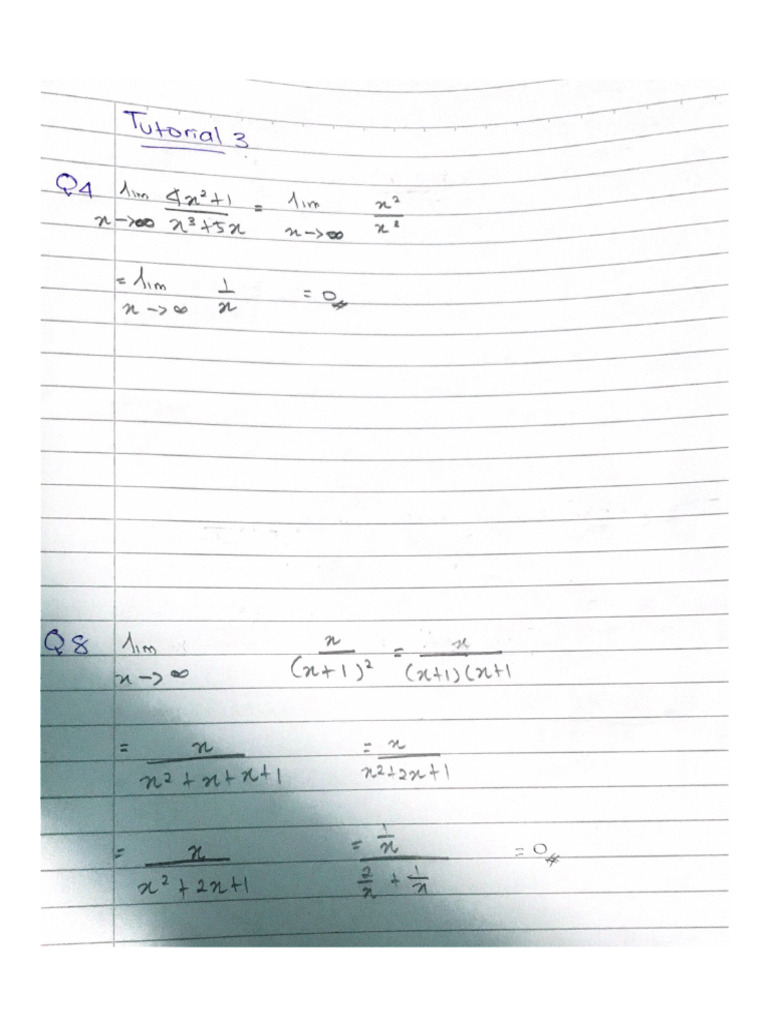 Tutorial 3
Q4 lim x→∞ (4x²+1)/(x³+5x) = lim x→∞ x²/x³
= lim x→∞ 1/x = 0
Q8 lim x→∞ x/(x+1)² = x/(x+1)(x+1
= x/(x²+x+x+1) = x/(x²+2x+1)
= x/(x²+2x+1) = (1/x)/(2/x + 1/x) = 0